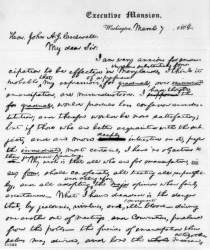 Executive Mansion,
Washington, March 7, 186
Hon. John A. J. Creswell
My dear Sir:
I am very anxious for eman-
cipation to be effected in Maryland in some substantial form. I think it
probable that my expressions of a preference for gradual over immediate
emancipation, are misunderstood. I had thought
the gradual would produce less confusion and desti-
tution, and therefore would be more satisfactory;
but if those who are better acquainted with the sub-
ject, and are more deeply interested in it, prefer
the immediate, most certainly I have no objection to
their judgment prevailing.
My wish is that all who are for emancipation
in any form, shall co-operate, all treating all respectful-
ly, and all adopting and acting upon the major opinion, when fairly
ascertained. What I have dreaded is the danger
that by jealousies, rivalries, and consequent ill-blood driving
one another out of meetings and conventions, perchance
from the polls the friends of emancipation themselves